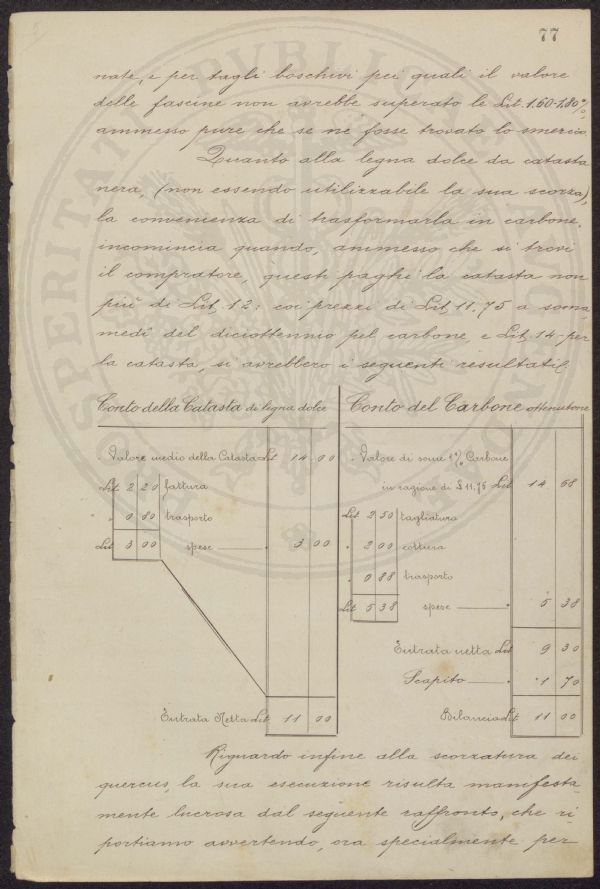 77
nate, e per tagli boschivi pei quali il valore
delle fascine non avrebbe superato le Lit. 1.60-1.80 %,
ammesso pure che se ne fosse trovato lo smercio
Quanto alla legna dolce da catasta
nera, (non essendo utilizzabile la sua scorza),
la convenienza di trasformarla in carbone,
incomincia quando, ammesso che si trovi
il compratore, questi paghi la catasta non
più di Lit. 12: coi prezzi di Lit. 11,75 a soma,
medî del diciottennio pel carbone, e Lit. 14- per
la catasta, si avrebbero i seguenti resultati.
Conto della Catasta di legna dolce
Valore medio della Catasta Lit 14.00
Lit 2 20 fattura
" 0 80 trasporto
Lit 3 00 spese " 3 00
Entrata Netta Lit 11 00
Conto del Carbone ottenutone
Valore di some Carbone
in ragione di L 11,75 Lit 14 68
Lit 2 50 tagliatura
" 2 00 cottura
" 0 88 trasporto
Lit 5 38 spese " 5 38
Entrata netta Lit 9 30
Scapito " 1 70
Bilancia Lit 11 00
Riguardo infine alla scorzatura dei
quercus, la sua esecuzione risulta manifesta
mente lucrosa dal seguente raffronto, che ri
portiamo avvertendo, ora specialmente per